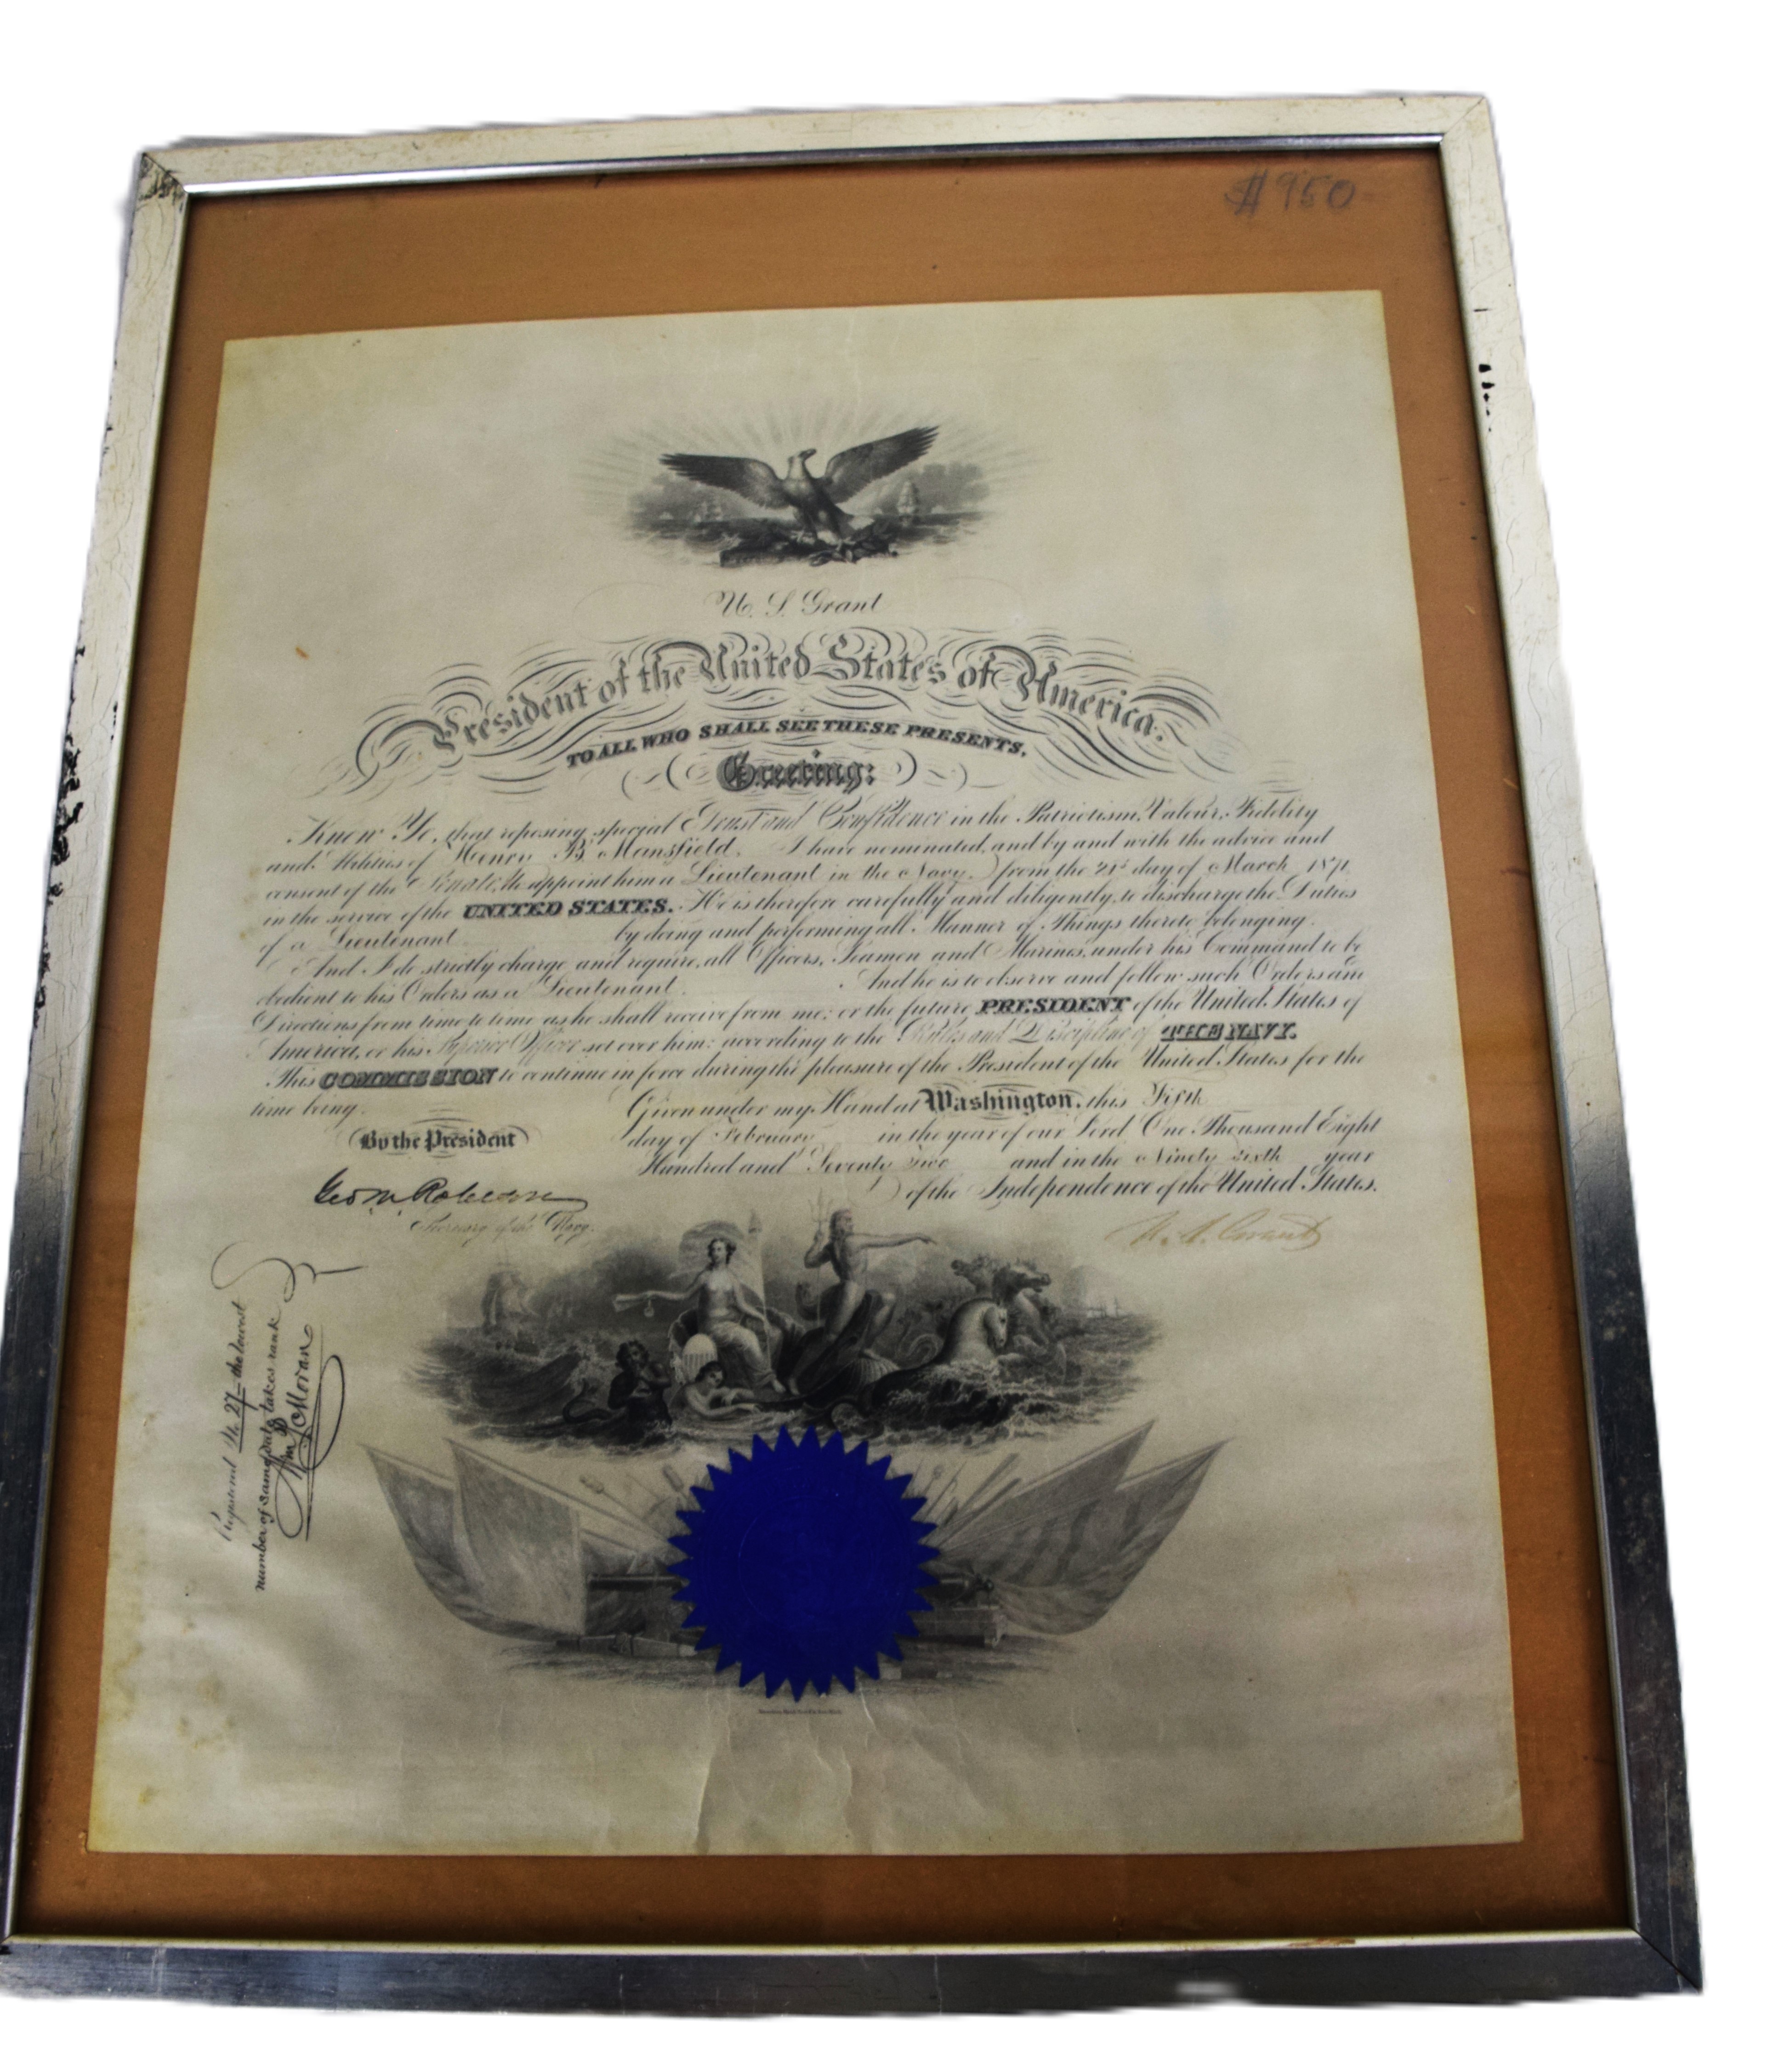 $950-
U. S. Grant
President of the United States of America.
TO ALL WHO SHALL SEE THESE PRESENTS,
Greeting:
Know Ye, that reposing special Trust and Confidence in the Patriotism, Valour, Fidelity
and Abilities of Henry B. Mansfield, I have nominated, and by and with the advice and
consent of the Senate, do appoint him a Lieutenant in the Navy from the 21st day of March 1871
in the service of the UNITED STATES. He is therefore carefully and diligently, to discharge the Duties
of a Lieutenant by doing and performing all Manner of Things thereto belonging.
And I do strictly charge and require, all Officers, Seamen and Marines, under his Command to be
obedient to his Orders as a Lieutenant. And he is to observe and follow such Orders and
Directions from time to time as he shall receive from me; or the future PRESIDENT of the United States of
America, or his Superior Officer set over him; according to the Rules and Discipline of THE NAVY.
This COMMISSION to continue in force during the pleasure of the President of the United States for the
time being.
Given under my Hand at Washington, this Fifth
day of February in the year of our Lord One Thousand Eight
Hundred and Seventy two and in the Ninety sixth year
of the Independence of the United States.
By the President
Geo. M. Robeson
Secretary of the Navy.
U. S. Grant
Registered No. 27 - the lowest
number of same date takes rank
Wm P Moran